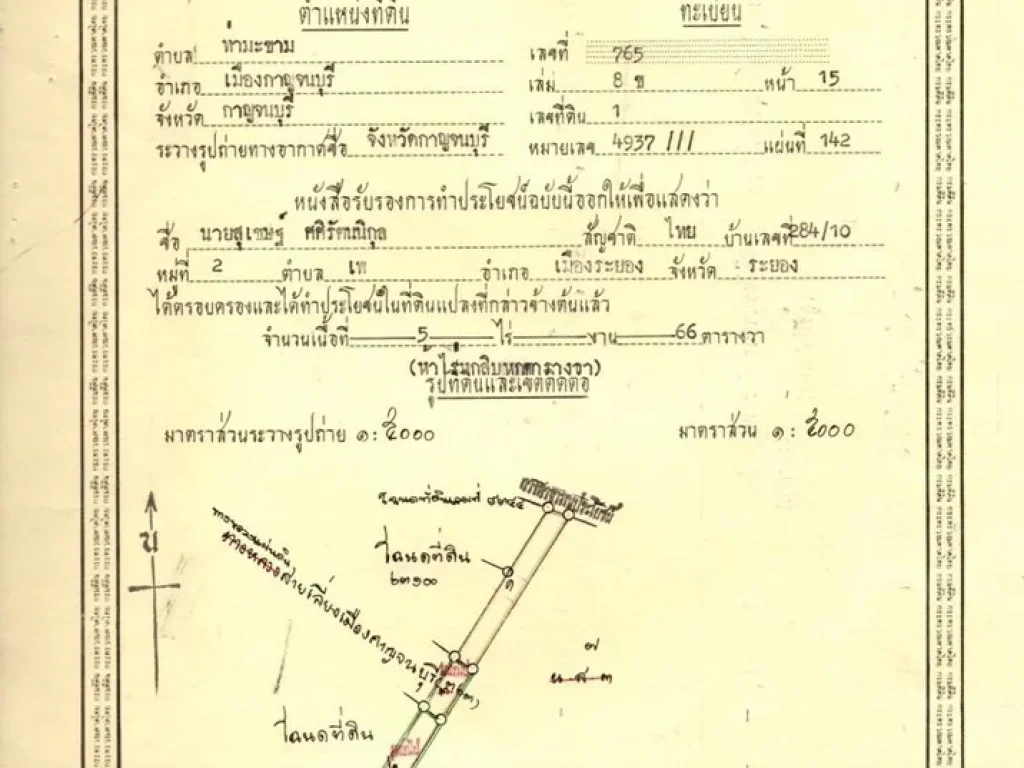 ตำแหน่งที่ดิน ทะเบียน
ตำบล ท่ามะขาม เลขที่ 765
อำเภอ เมืองกาญจนบุรี เล่ม 8 ข หน้า 15
จังหวัด กาญจนบุรี เลขที่ดิน 1
ระวางรูปถ่ายทางอากาศชื่อ จังหวัดกาญจนบุรี หมายเลข 4937 /// แผ่นที่ 142
หนังสือรับรองการทำประโยชน์ฉบับนี้ออกให้เพื่อแสดงว่า
ชื่อ นายสุเชษฐ์ ศศิรัตนนิกุล สัญชาติ ไทย บ้านเลขที่ 284/10
หมู่ที่ 2 ตำบล เพ อำเภอ เมืองระยอง จังหวัด ระยอง
ได้ครอบครองและได้ทำประโยชน์ในที่ดินแปลงที่กล่าวข้างต้นแล้ว
จำนวนเนื้อที่ 5 ไร่ งาน 66 ตารางวา
(ห้าไร่หกสิบหกตารางวา)
รูปที่ดินและเขตติดต่อ
มาตราส่วนระวางรูปถ่าย ๑ : ๕๐๐๐ มาตราส่วน ๑ : ๕๐๐๐
โฉนดที่ดินเลขที่ ๘๒๔๕
น
โฉนดที่ดิน
๒๓๑๐๐
ทางหลวงสายเลี่ยงเมืองกาญจนบุรี
๗
น.ส.๓
โฉนดที่ดิน